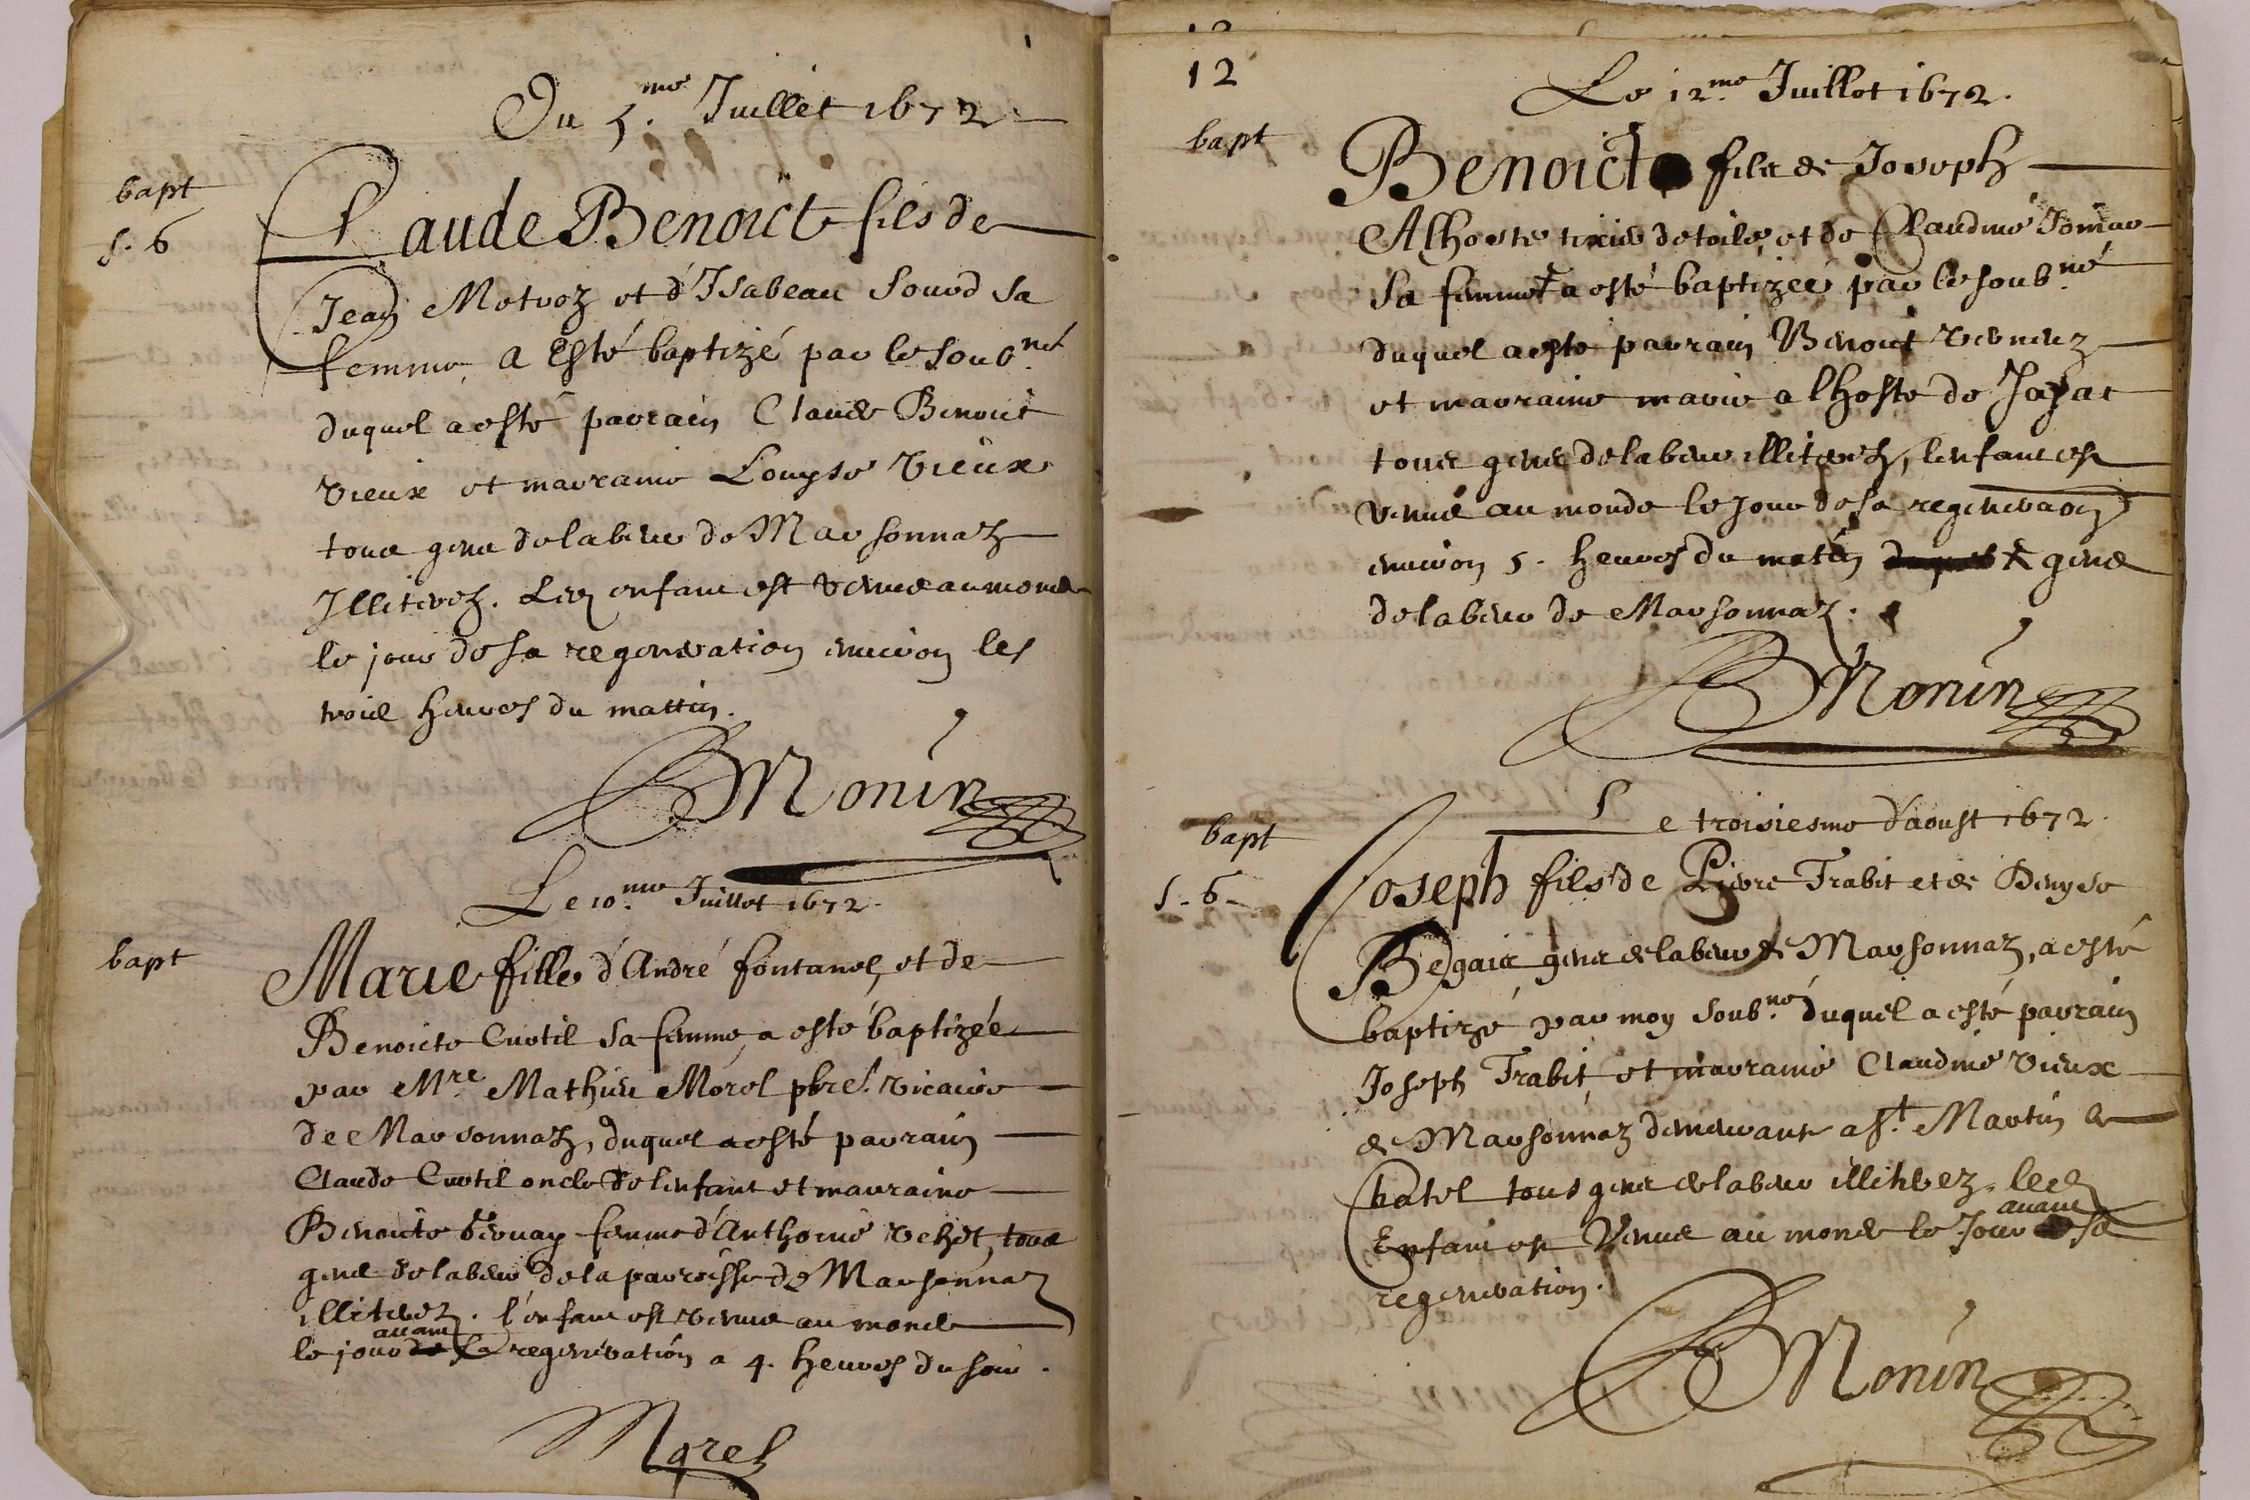 Du 5.me Juillet 1672
bapt
s. 6
Claude Benoict fils de
Jean Motroz et d'Isabeau Sourd sa
femme, a Esté baptizé par le soub.né
duquel a esté parrain Claude Benoict
Vieux et marraine Louyse Vieux
tous gens de labeur de Marsonnaz
Illiterez. Led enfant est venu au monde
le jour de sa regeneration environ les
trois heures du mattin.
BMonin
Le 10.me Juillet 1672.
bapt
Marie fille d'André fontanel, et de
Benoicte Curtil sa femme, a esté baptizée
par M.re Mathieu Morel pbre. vicaire
de Marsonnaz, duquel a esté parrain
Claude Curtil oncle de l'enfant et marraine
Benoicte femme d'Anthoine tous
gens de labeur de la parroisse de Marsonnaz
illiterez. l'enfant est venue au monde
avant
le jour de sa regeneration a 4. heures du soir.
Morel
12
Le 12.me Juillet 1672.
bapt
Benoicte fille de Joseph
Alhoste tixier de toile, et de Claudine
sa femme a esté baptizée par le soub.né
duquel a esté parrain Benoict
et marraine marie alhoste de Jayat
tous gens de labeur illiterez, l'enfant est
venue au monde le jour de sa regeneraon
environ 5. heures du matin gens
de labeur de Marsonnaz.
BMonin
Le troisiesme d'aoust 1672.
bapt
s. 6.
Joseph fils de Pierre Trabit et de Denyse
Begair gens de labeur de Marsonnaz, a esté
baptizé par moy soub.né duquel a esté parrain
Joseph Trabit et marraine Claudine Vieux
de Marsonnaz demeurant a St. Martin le
Chatel tous gens de labeur illiterez. led
avant
Enfant est venu au monde le Jour sa
regeneration.
BMonin